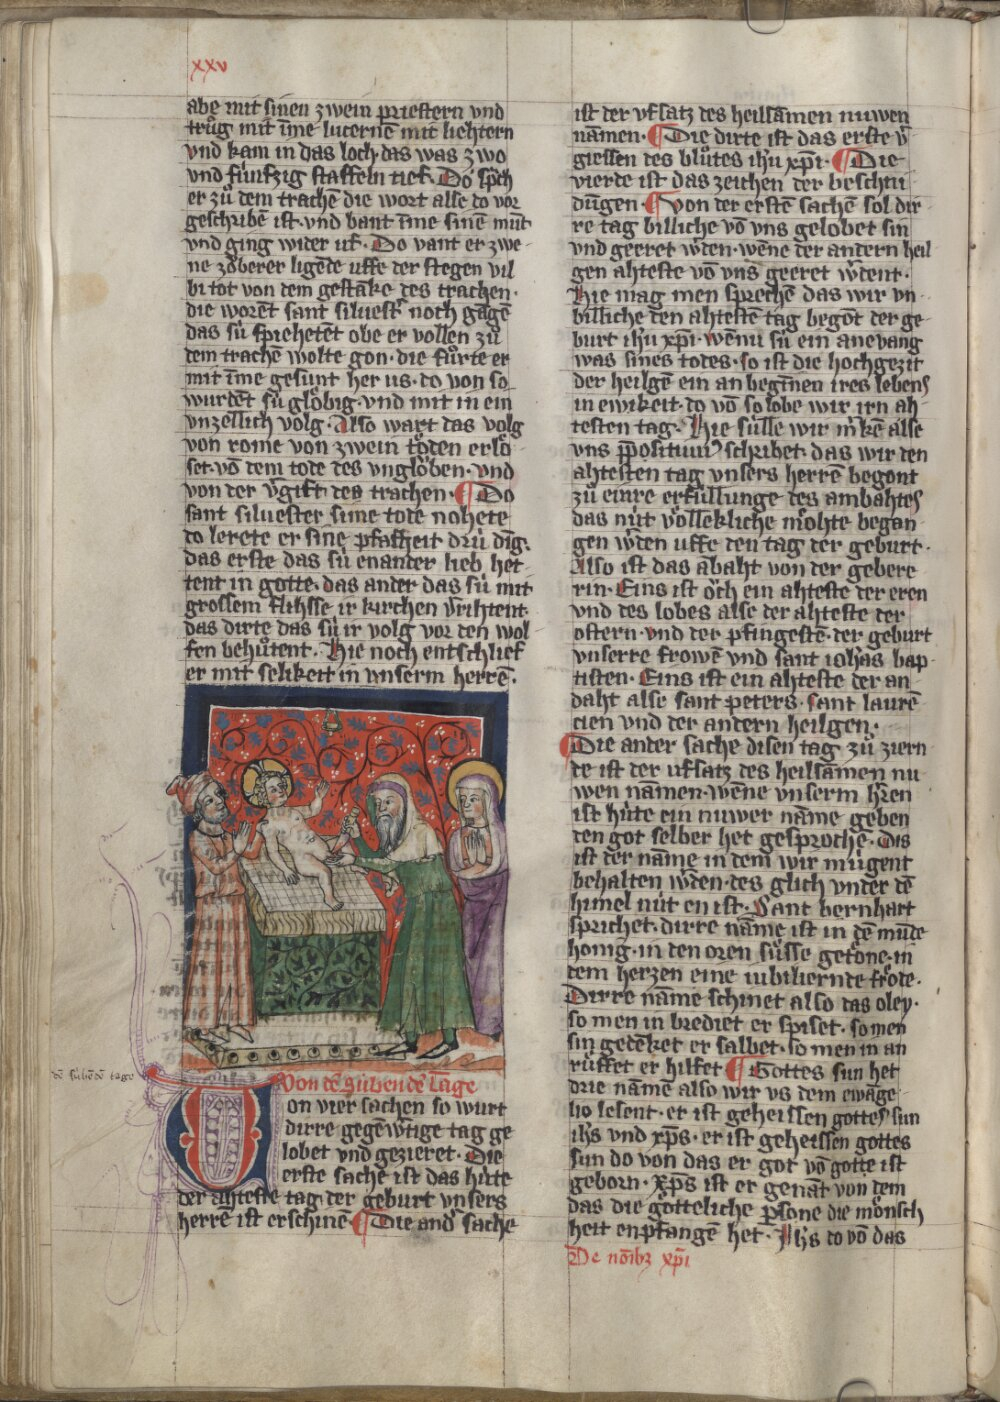 xxv
abe mit sinen zwein priestern vnd
trůg mit im̄e lucernē mit liehtern
vnd kam in das loch· das was zwo
vnd fúnfzig staffeln tief· Do sp̄ch
er zů dem trachē die wort alse do vor
geschribē ist· vnd bant im̄e sinē mūt
vnd ging wider uf· Do vant er zwe
ne zǒberer ligēde uffe der stegen vil
bi tot von dem gestāke des trachen·
die worēt sant siluestr̄ noch gāgē
das sú spehetēt obe er vollen zů
dem trachē wolte gon· die fůrte er
mit im̄e gesunt her us· do von so
wurdēt sú glǒbig· vnd mit in ein
vnzellich volg· Also wart das volg
von rome von zwein tǒden erlǒ
set· vō dem tode des vnglǒben· vnd
von der v̄gift des trachen· ¶ Do
sant siluester sime tode nohete
do lerete er sine pfafheit drú dīg·
das erste das sú enander lieb het
tent in gotte· das ander das sú mit
grossem flihsse ir kirchen v̄rihtent·
das dirte das sú ir volg vor den wol
fen behůtent· Hie noch entschlief
er mit selikeit in vnserm herrē·
dē súbēdē tage
Von dē súbendē Tage
Von vier sachen so wurt
dirre gegēwtige tag ge
lobet vnd gezieret· Die
erste sache ist das húte
der ahteste tag der geburt vnsers
herrē ist erschinē ¶ Die and̄ sache
ist der vfsatz des heilsāmen nuwen
nāmen· ¶ Die dirte ist das erste v̄
giessen des blůtes ih̄u xp̄i· ¶ Die
vierde ist das zeichen der beschni
dūgen· ¶ Von der erstē sachē sol dir
re tag billiche vō vns gelobet sin
vnd geeret w̄den· wēne der andern heil
gen ahteste vō vns geeret w̄dent·
Hie mag men sprechē das wir vn
billiche den ahtestē tag begōt der ge
burt ih̄u xp̄i· wēnu sú ein anevang
was sines todes· so ist die hochgezit
der heilgē ein an begīnen ires lebens
in ewikeit· do vō so lobe wir irn ah
testen tag· Hie súlle wir m̄kē alse
vns p̄positiuus schribet· das wir den
ahtesten tag vnsers herrē begont
zů einre erfúllunge des ambahtes
das nút vǒllekliche mǒhte began
gen w̄den uffe den tag der geburt·
Also ist das ābaht von der gebere
rin· Eins ist ǒch ein ahteste der eren
vnd des lobes alse der ahteste der
ostern· vnd der pfingestē· der geburt
vnserre frowē vnd sant ioh̄as bap
tisten· Eins ist ein ahteste der an
daht alse sant peters· sant laurē
cien vnd der andern heilgen·
¶ Die ander sache disen tag zů ziern
de ist der vfsatz des heilsāmen nu
wen namen· wēne vnserm h̄ren
ist húte ein nuwer nāme geben
den got selber het gesprochē· Dis
ist der nāme in dem wir múgent
behalten w̄den· des glich vnder dē
himel nút en ist· Sant bernhart
sprichet· dirre nāme ist in dē mūde
honig· in den oren sůsse getǒne· in
dem herzen eine iubilierende frǒde·
Dirre nāme schinet also das oley·
so men in brediet er spiset· so men
sin gedēket er salbet· so men in an
růffet er hilfet ¶ Gottes sun het
drie nāmē also wir vs dem ewāge
lio lesent· er ist geheissen gottes sun
ih̄s vnd xp̄s· er ist geheissen gottes
sun do von das er got vō gotte ist
geborn· xp̄s ist er genāt von dem
das die gǒtteliche p̄sone die mǒnsch
heit enpfangē het· Ih̄s do vō das
De nōibꝫ xp̄i